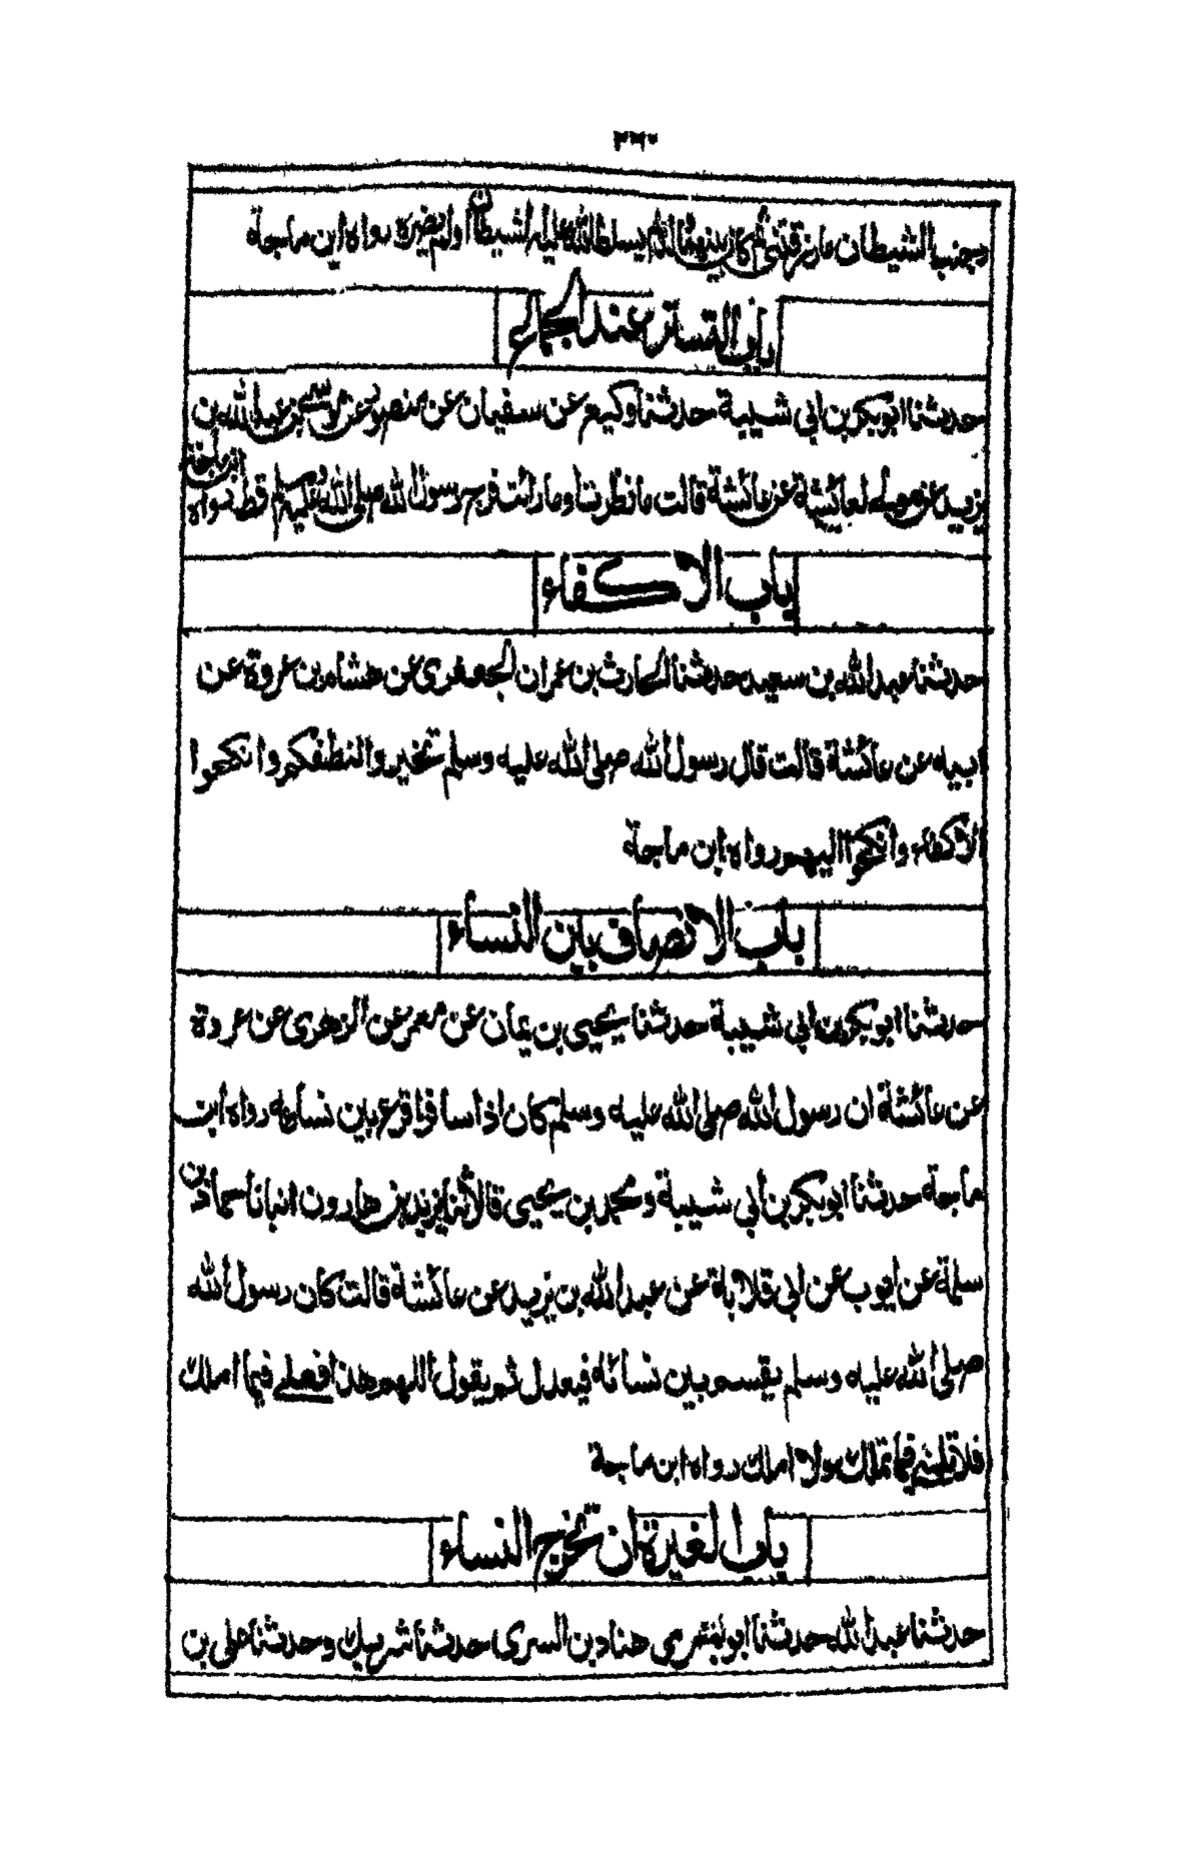 ٣٦٠
وجنب الشيطان مارزقتنى ثم كان بينهما ولد لم يسلط الله عليه الشيطان اولم يضره رواه ابن ماجة
باب التستر عند الجماع
حدثنا ابوبكر بن ابي شيبة حدثنا وكيع عن سفيان عن منصور عن موسى بن عبدالله بن
يزيد عن مولى لعائشة عن عائشة قالت مانظرت اوما رايت فرج رسول الله صلى الله عليه وسلم قط رواه ابن ماجة
باب الاكفاء
حدثنا عبدالله بن سعيد حدثنا الحارث بن عمران الجعفرى عن هشام بن عروة عن
ابيه عن عائشة قالت قال رسول الله صلى الله عليه وسلم تخيروا لنطفكم وانكحوا
الاكفاء وانكحوا اليهم رواه ابن ماجة
باب الانصاف بين النساء
حدثنا ابوبكر بن ابي شيبة حدثنا يحيى بن يمان عن معمر عن الزهرى عن عروة
عن عائشة ان رسول الله صلى الله عليه وسلم كان اذا سافر اقرع بين نسائه رواه ابن
ماجة حدثنا ابوبكر بن ابي شيبة ومحمد بن يحيى قالا ثنا يزيد بن هارون انبانا حماد بن
سلمة عن ايوب عن ابي قلابة عن عبدالله بن يزيد عن عائشة قالت كان رسول الله
صلى الله عليه وسلم يقسم بين نسائه فيعدل ثم يقول اللهم هذا فعلى فيما املك
فلا تلمنى فيما تملك ولا املك رواه ابن ماجة
باب الغيرة ان تخرج النساء
حدثنا عبدالله حدثنا ابو هناد بن السرى حدثنا شريك وحدثنا على بن